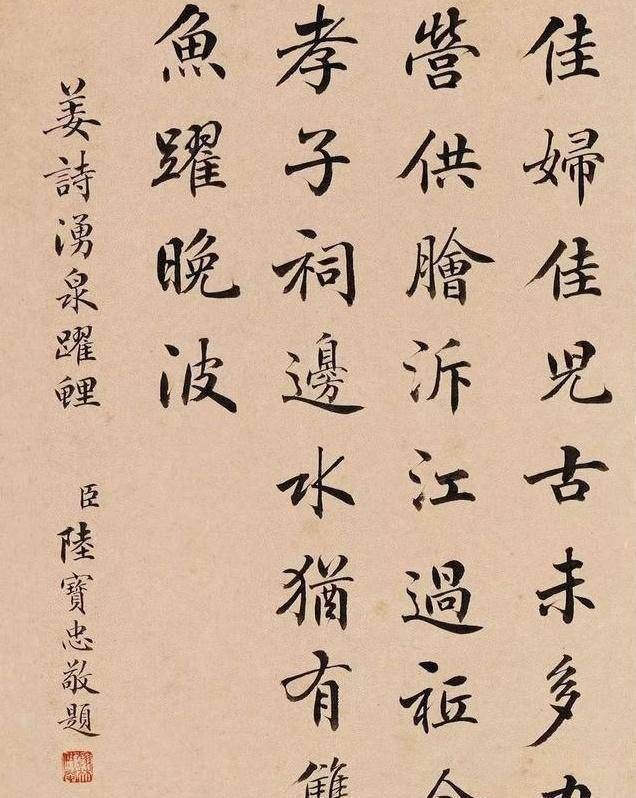 佳婦佳兒古未多力
營供膾泝江過祗今
孝子祠邊水猶有雙
魚躍晚波
姜詩湧泉躍鯉 臣陸寶忠敬題